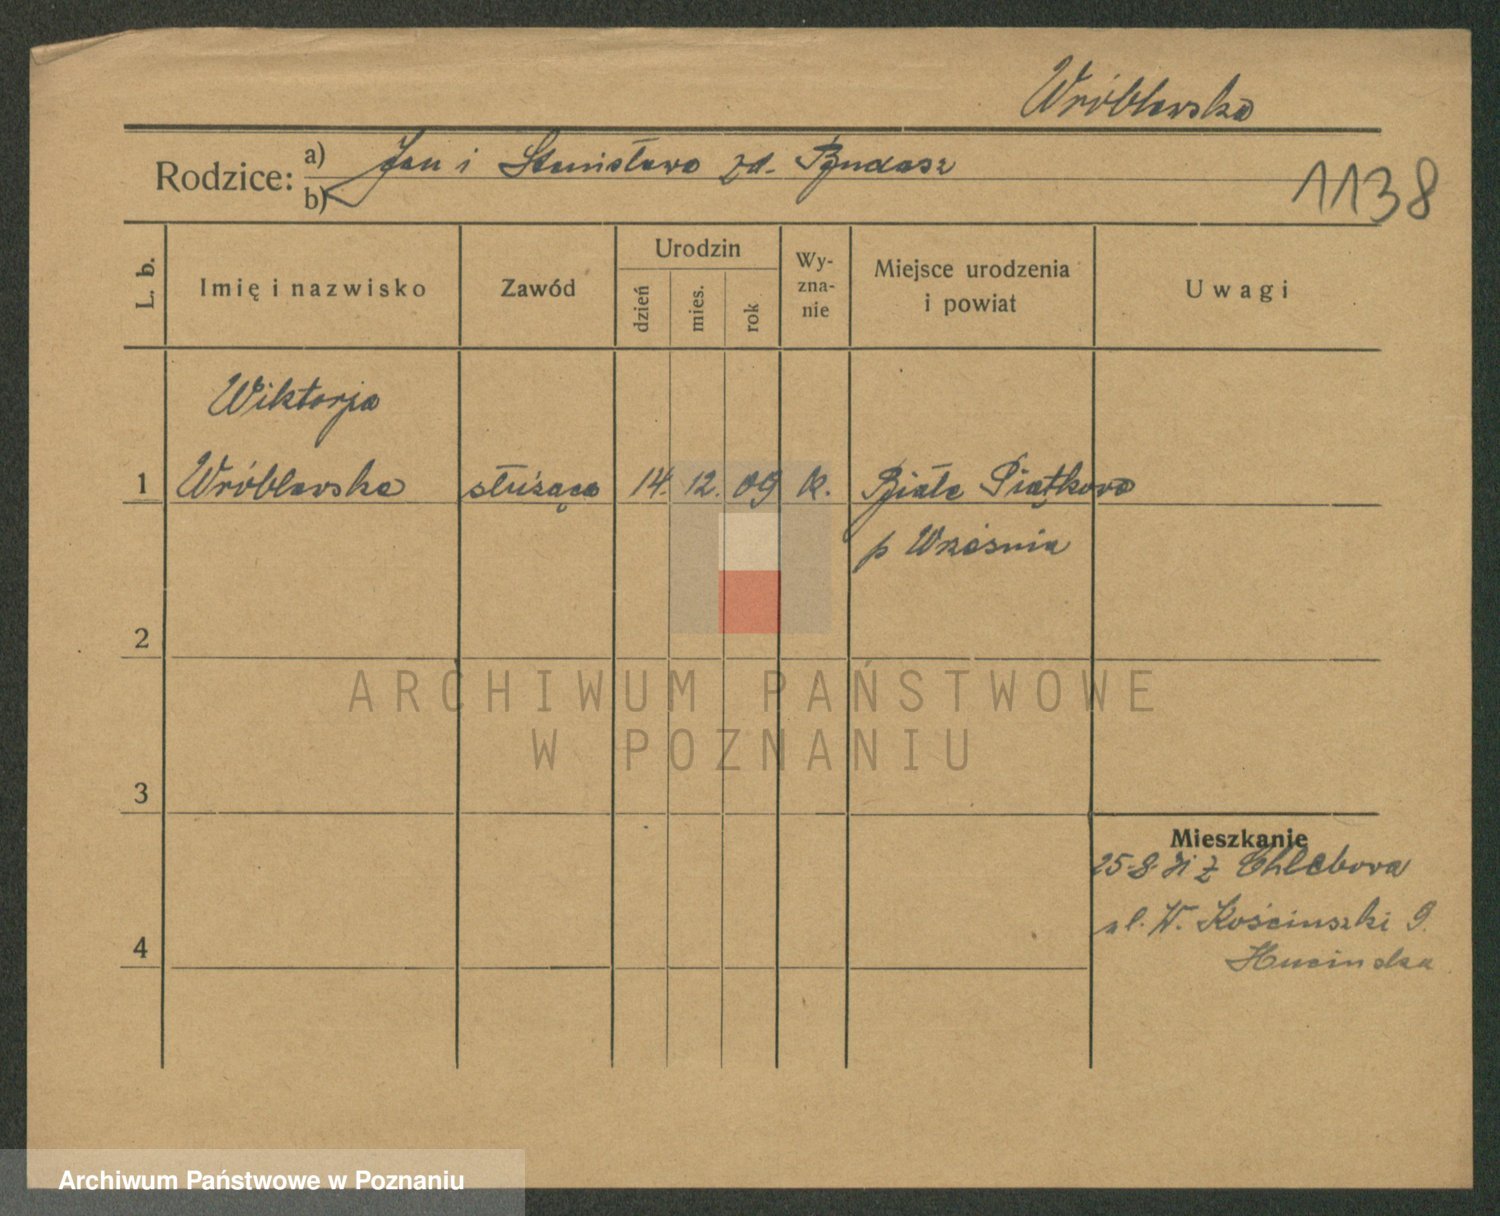 Wróblewska
Rodzice: a) Jan i Stanisława zd. Bydasz
b)
1138
L. b.
Imię i nazwisko
Zawód
Urodzin
dzień
mies.
rok
Wy-
zna-
nie
Miejsce urodzenia
i powiat
Uwagi
Wiktorja
1 Wróblewska służąca 14. 12. 09 k. Białe Piątkowo
p Września
2
ARCHIWUM PAŃSTWOWE
W POZNANIU
3
Mieszkanie
25.8. z Chlebowa
ul. W. Kościuszki 9.
4
Archiwum Państwowe w Poznaniu